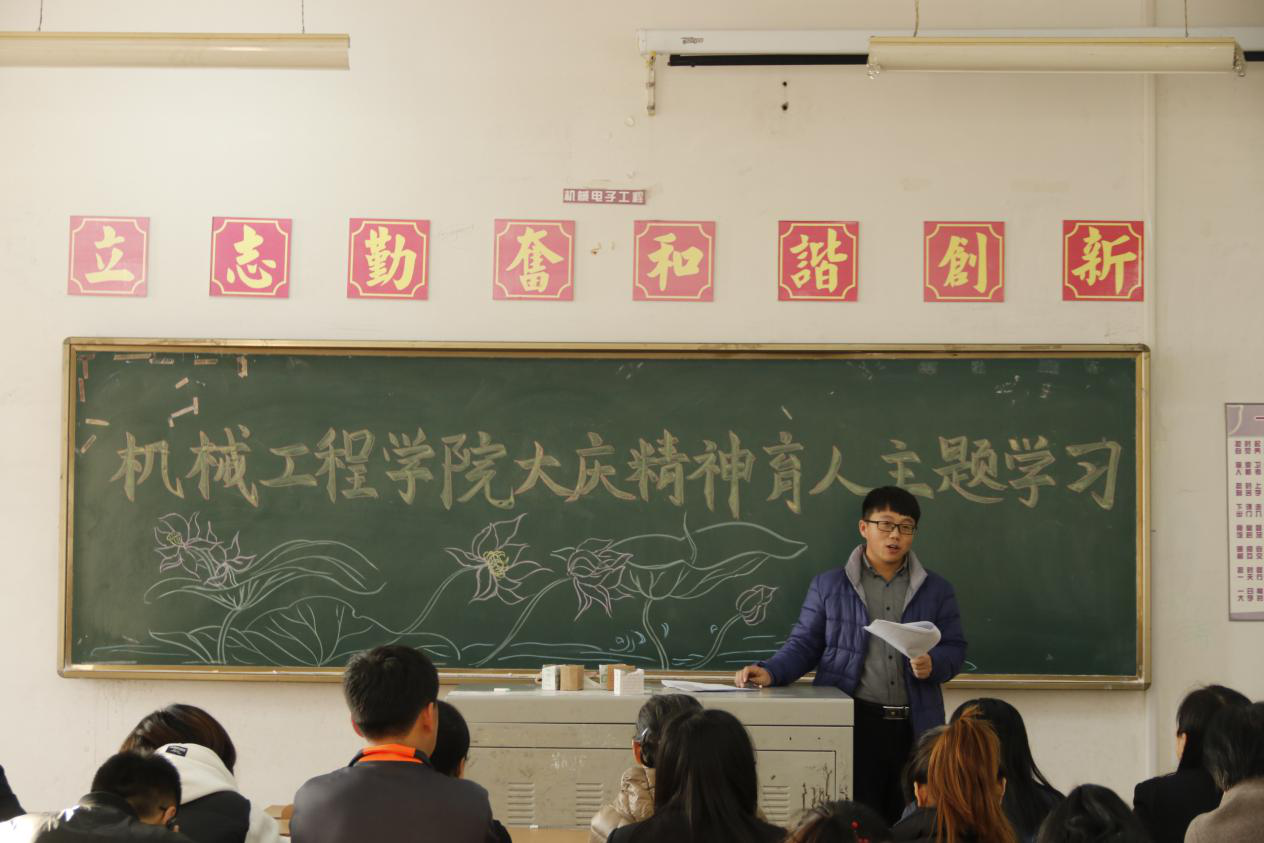 机械电子工程
立志勤奋和諧創新
机械工程学院大庆精神育人主题学习